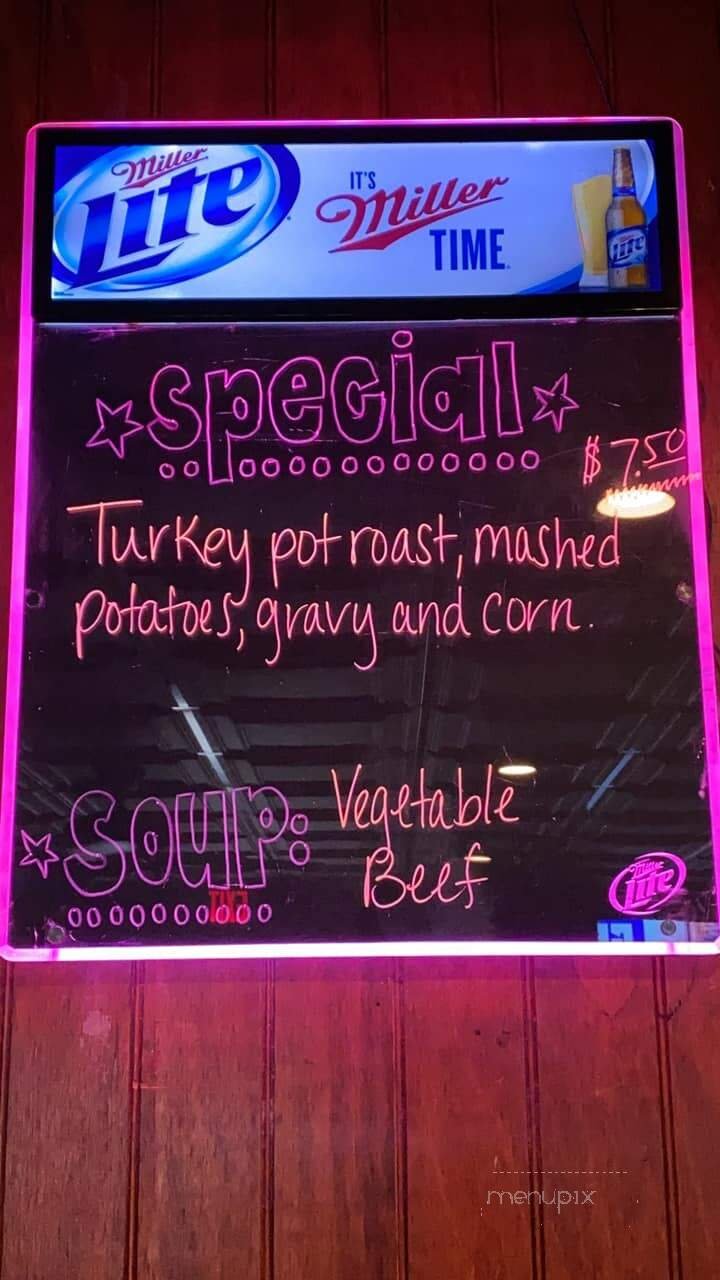 Miller
Lite
IT'S
Miller
TIME
Lite
Special
$7.50
Turkey pot roast, mashed
potatoes, gravy and corn.
Soup: Vegetable
Beef
Miller
Lite
menupix